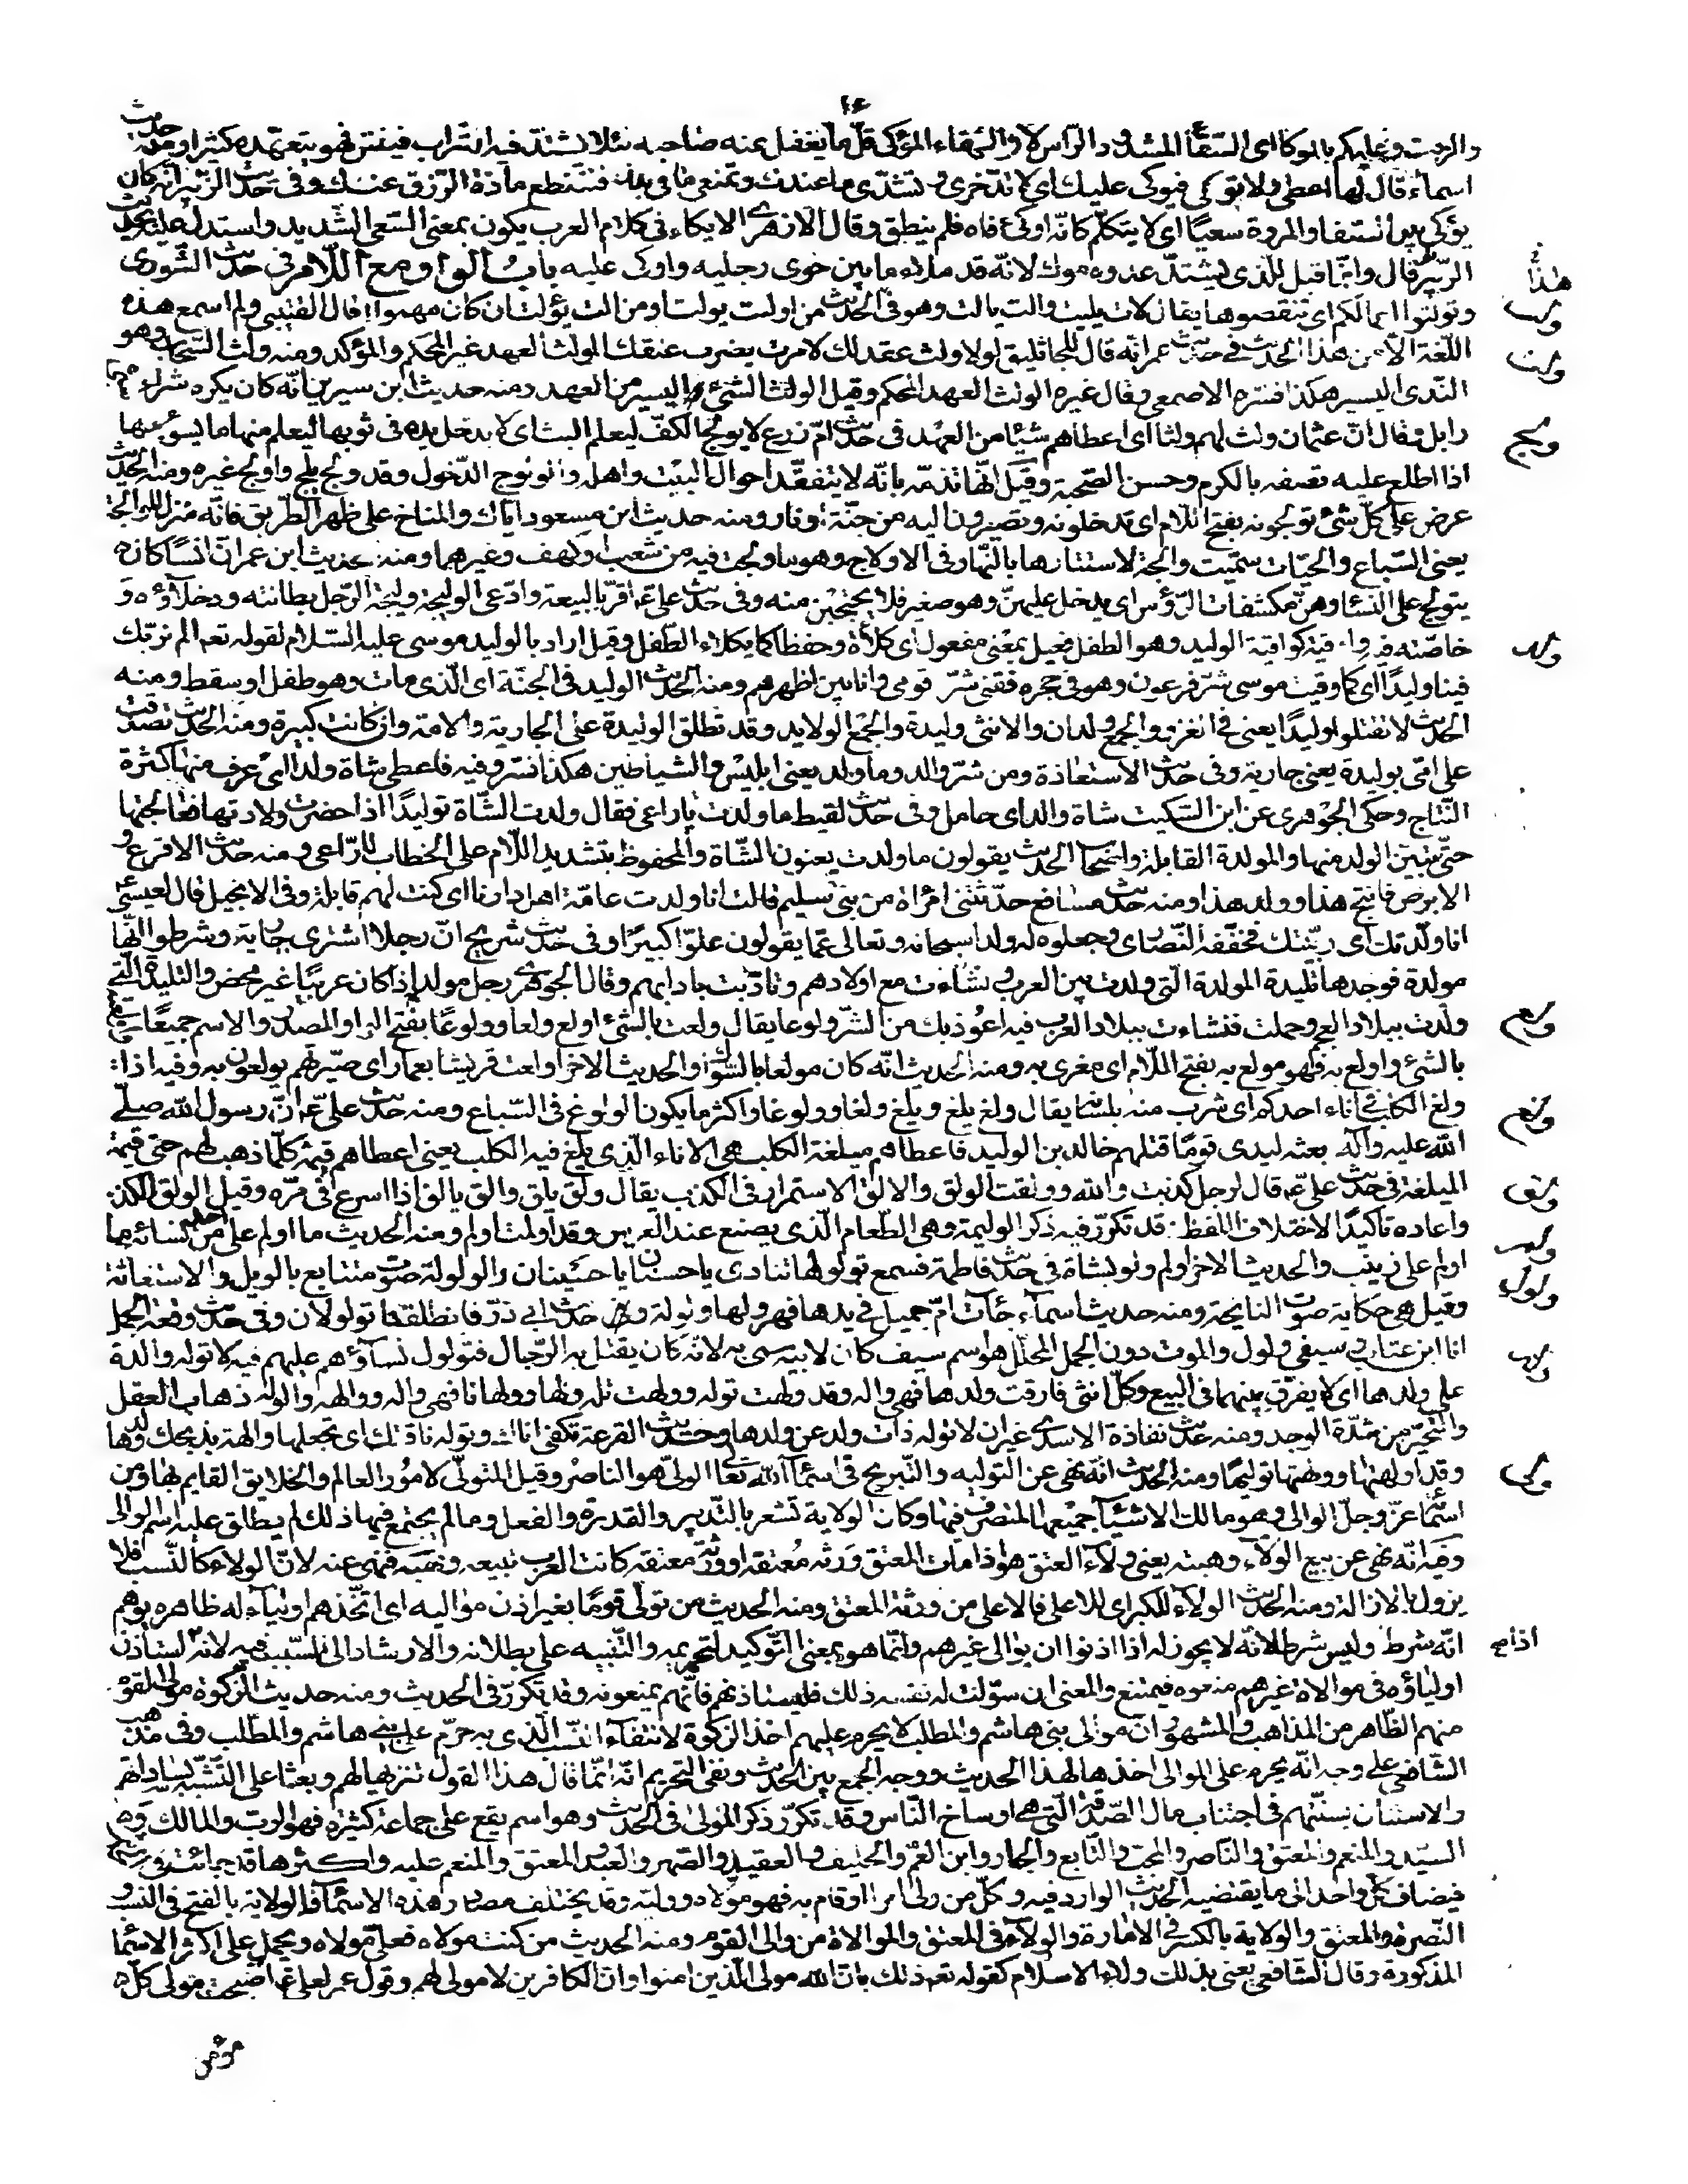 والمزفت وعليكم بالموكا اى السقأ المشدود الراس لان السقاء الموكى قل ما يغفل عنه صاحبه لئلا يشتد فيه الشراب فينشق فهو يتعهده كثيرا ومنه حديث
اسماء قال لها اعطى ولا توكى فيوكى عليك اى لا تدخرى وتشدى ما عندك وتمنعى ما فى يدك فتنقطع مادة الرزق عنك وفى حديث الزبير انه كان
يوكى بين الصفا والمروة سعيا اى لا يتكلم كانه اوكى فاه فلم ينطق وقال الازهرى الايكاء فى كلام العرب يكون بمعنى السعى الشديد واستدل عليه بحديث
الزبير قال وانما قيل للذى يشتد عدوه موك لانه قد ملاء ما بين خوى رجليه واوكى عليه باب الواو مع اللام فى حديث الشورى
وتولتوا اعمالكم اى تنقصوها يقال لات يليت والت يالت وهو فى الحديث من اولت يولت او من الت يؤلت ان كان مهموزا قال القتيبى ولم اسمع هذه
اللغة الا من هذا الحديث فى حديث عمر انه قال للجاثليق لولا ولث عقد لك لامرت بضرب عنقك الولث العهد غير المحكم والمؤكد ومنه ولث السحاب وهو
الندى اليسير هكذا فسره الاصمعى وقال غيره الولث العهد المحكم وقيل الولث الشئ اليسير من العهد ومنه حديث ابن سيرين انه كان يكره شراء
زابل وقال ان عثمان ولث لهم ولثا اى اعطاهم شيئا من العهد فى حديث ام زرع لا يولج الكف ليعلم البث اى لا يدخل يده فى ثوبها ليعلم منها ما يسوءها
اذا اطلع عليه تصفه بالكرم وحسن الصحبة وقيل انها تذمه بانه لا يتفقد احوال البيت واهله والولوج الدخول وقد ولج يلج واولج غيره ومنه الحديث
عرض على كل شئ تولجونه بفتح اللام اى تدخلونه وتصيرون اليه من جنة او نار ومنه حديث ابن مسعود اياك والمناخ على ظهر الطريق فانه منزل للوالجة
يعنى السباع والحيات سميت والجة لاستتارها بالنهار فى الاولاج وهو ما ولجت فيه من شعب او كهف وغيرهما ومنه حديث ابن عمر ان انسا كان
يتولج على النساء وهن مكشفات الرؤس اى يدخل عليهن وهو صغير فلا يحتجبن منه وفى حديث على ع اقر بالبيعة وادعى الوليجة وليجة الرجل بطانته ودخلاؤه و
خاصته فيه واقية كواقية الوليد وهو الطفل فعيل بمعنى مفعول اى كلاة وحفظا كما يكلاء الطفل وقيل اراد بالوليد موسى عليه السلام لقوله تعم الم نربك
فينا وليدا اى كما وقيت موسى شر فرعون وهو فى حجره فقنى شر قومى وانا بين اظهرهم ومنه الحديث الوليد فى الجنة اى الذى مات وهو طفل او سقط ومنه
الحديث لا تقتلوا وليدا يعنى فى الغزو والجمع ولدان والانثى وليدة والجمع الولايد وقد تطلق الوليدة على الجارية والامة وان كانت كبيرة ومنه الحديث تصدقت
على امى بوليدة يعنى جارية وفى حديث الاستعاذة ومن شر والد وما ولد يعنى ابليس والشياطين هكذا فسر وفيه فاعطى شاة والدا اى عرف منها كثرة
النتاج وحكى الجوهرى عن ابن السكيت شاة والد اى حامل وفى حديث لقيط ما ولدت يا راعى فقال ولدت الشاة توليدا اذا حضرت ولادتها فعالجتها
حتى تبين الولد منها والمولدة القابلة واصحاب الحديث يقولون ما ولدت يعنون الشاة والمحفوظ بتشديد اللام على الخطاب للراعى ومنه حديث الاقرع و
الابرص فانتج هذا وولد هذا ومنه حديث مسافع حدثتنى امراة من بنى سليم قالت انا ولدت عامة اهل دارنا اى كنت لهم قابلة وفى الانجيل قال لعيسى ع
انا ولدتك اى ربيتك فخففه النصارى وجعلوه له ولدا سبحانه وتعالى عما يقولون علوا كبيرا وفى حديث شريح ان رجلا اشترى جارية وشرطوا انها
مولدة فوجدها تليدة المولدة التى ولدت بين العرب ونشاءت مع اولادهم وتادبت بادابهم وقال الجوهرى رجل مولد اذا كان عربيا غير محض والتليدة التى
ولدت ببلاد العجم وحملت فنشاءت ببلاد العرب فيه اعوذ بك من الشر ولوعا يقال ولعت بالشئ اولع ولعا وولوعا بفتح الواو المصدر والاسم جميعا
بالشئ واولع به فهو مولع به بفتح اللام اى مغرى به ومنه الحديث انه كان مولعا بالسواك والحديث الاخر اولعت قريشا بعمار اى صيرهم يولعون به وفيه اذا
ولغ الكلب فى اناء احدكم اى شرب منه بلسانه يقال ولغ يلغ ويلغ ولغا وولوغا واكثر ما يكون الولوغ فى السباع ومنه حديث على ع ان رسول الله صلى
الله عليه وآله بعثه ليدى قوما قتلهم خالد بن الوليد فاعطاهم ميلغة الكلب هى الاناء الذى يلغ فيه الكلب يعنى اعطاهم قيمة كلما ذهب لهم حتى قيمة
الميلغة فى حديث على ع قال لرجل كذبت والله وولقت الولق والالق الاستمرار فى الكذب يقال ولق يلق والق يالق اذا اسرع فى مره وقيل الولق الكذب
واعاده تاكيدا لاختلاف اللفظ قد تكرر فيه ذكر الوليمة وهى الطعام الذى يصنع عند العرس وقد اولمت اولم ومنه الحديث ما اولم على احد من نسائه ما
اولم على زينب والحديث الاخر اولم ولو بشاة فى حديث فاطمة فسمع تولولها تنادى يا حسنان يا حسينان والولولة صوت متتابع بالويل والاستغاثة
وقيل هى حكاية صوت النايحة ومنه حديث اسماء جاءت ام جميل فى يدها فهر ولها ولولة وفى حديث ابى ذر فانطلقتا تولولان وفى حديث وقعة الجمل
انا ابن عتاب وسيفى ولول والموت دون الجمل المجلل هو اسم سيف كان لابيه سمى به لانه كان يقتل به الرجال فتولول نساؤهم عليهم فيه لا توله والدة
على ولدها اى لا يفرق بينهما فى البيع وكل انثى فارقت ولدها فهى واله وقد ولهت توله وولهت تله ولها وولهانا فهى والهة ووالهة والوله ذهاب العقل
والتحير من شدة الوجد ومنه حديث نقادة الاسدى غير ان لا توله ذات ولد عن ولدها وحديث القرعة تكفئ اناءك وتوله ناقتك اى تجعلها والهة بذبحك ولدها
وقد اولهتها وولهتها توليها ومنه الحديث انه نهى عن التوليه والتبريح فى اسماء الله تعا الولى هو الناصر وقيل المتولى لامور العالم والخلايق القايم بها ومن
اسمائه عز وجل الوالى وهو مالك الاشياء جميعها المتصرف فيها وكان الولاية تشعر بالتدبير والقدرة والفعل وما لم يجتمع فيها ذلك لم يطلق عليه اسم الوالى
وفيه انه نهى عن بيع الولاء وهبته يعنى ولاء العتق وهو اذا مات المعتق ورثه معتقه او ورثة معتقه كانت العرب تبيعه وتهبه فنهى عنه لان الولاء كالنسب فلا
يزول بالازالة ومنه الحديث الولاء للكبر اى للاعلى فالاعلى من ورثة المعتق ومنه الحديث من تولى قوما بغير اذن مواليه اى اتخذهم اولياء له ظاهره يوهم
انه شرط وليس شرطا لانه لا يجوز له اذا اذنوا ان يوالى غيرهم وانما هو بمعنى التوكيد لتحريمه والتنبيه على بطلانه والارشاد الى السبب فيه لانه اذا استاذن
اولياؤه فى موالاة غيرهم منعوه فيمتنع والمعنى ان سولت له نفسه ذلك فليستاذنهم فانهم يمنعونه وقد تكرر فى الحديث ومنه حديث الزكوة مولى القوم
منهم الظاهر من المذاهب والمشهور ان موالى بنى هاشم والمطلب لا يحرم عليهم اخذ الزكوة لانتفاء النسب الذى به حرم على بنى هاشم والمطلب وفى مذهب
الشافعى على وجه انه يحرم على الموالى اخذها لهذا الحديث ووجه الجمع بين الحديث ونفى التحريم انه انما قال هذا القول تنزيها لهم وبعثا على التشبه بساداتهم
والاستنان بسنتهم فى اجتناب مال الصدقة التى هى اوساخ الناس وقد تكرر ذكر المولى فى الحديث وهو اسم يقع على جماعة كثيرة فهو الرب والمالك و
السيد والمنعم والمعتق والناصر والمحب والتابع والجار وابن العم والحليف والعقيد والصهر والعبد والمعتق والمنعم عليه واكثرها قد جائت فى
فيضاف كل واحد الى ما يقتضيه الحديث الوارد فيه وكل من ولى امرا او قام به فهو مولاه ووليه وقد يختلف مصادر هذه الاسماء فالولاية بالفتح فى النسب و
النصرة والمعتق والولاية بالكسر فى الامارة والولاء فى المعتق والموالاة من والى القوم ومنه الحديث من كنت مولاه فعلى مولاه ويحمل على اكثر الاسماء
المذكورة وقال الشافعى يعنى بذلك ولاء الاسلام كقوله تعم ذلك بان الله مولى الذين امنوا وان الكافرين لا مولى لهم وقول عمر لعلى ع اصبحت مولى كل
مؤمن
ولت
ولث
ولج
ولد
ولع
ولغ
ولق
ولم
ولول
وله
ولى